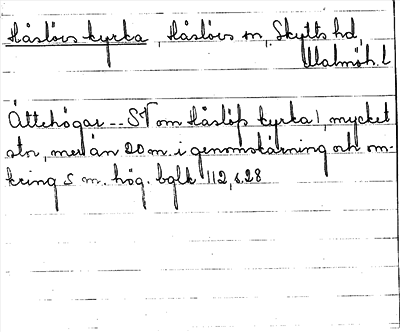 Håslövs kyrka, Håslövs sn, Skytts hd,
Malmöh. l
Ättehögar -- SV om Håslöfs kyrka 1, mycket
stor, mer än 20 m. i genomskärning och om-
kring 5 m. hög. bglk 112, s. 28